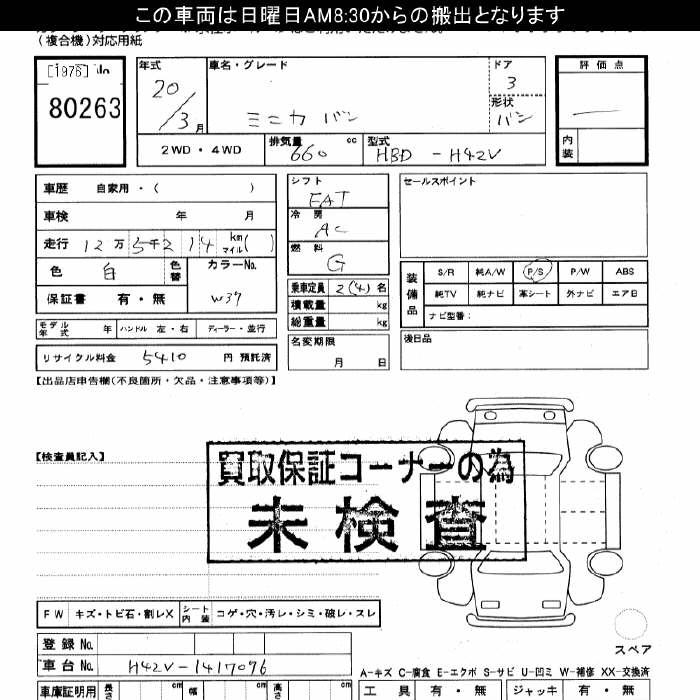 この車両は日曜日AM8:30からの搬出となります
(複合機)対応用紙
[1976]
80263
年式
20/3月
車名・グレード
ミニカ バン
ドア
3
形状
バン
評価点
内装
2WD・4WD
排気量
660 cc
型式
HBD - H42V
車歴 自家用・( )
車検 年 月
走行 12万5千214 km マイル( )
色 白 色替 カラーNo. W37
保証書 有・無
モデル年式 年 ハンドル 左・右 ディーラー・並行
リサイクル料金 5410 円 預託済
シフト
FAT
冷房
AC
燃料
G
乗車定員 2(4)名
積載量 kg
総重量 kg
名変期限
月 日
セールスポイント
装備品
S/R 純A/W P/S P/W ABS
純TV 純ナビ 革シート 外ナビ エアB
ナビ型番:
後日品
【出品店申告欄(不良箇所・欠品・注意事項等)】
【検査員記入】
買取保証コーナーの為
未検査
FW キズ・トビ石・割レX シート内装 コゲ・穴・汚レ・シミ・破レ・スレ
スペア
登録No.
車台No. H42V-1417096
A-キズ C-腐食 E-エクボ S-サビ U-凹ミ W-補修 XX-交換済
車庫証明用 長さ cm 幅 cm 高さ cm
工具 有・無 ジャッキ 有・無